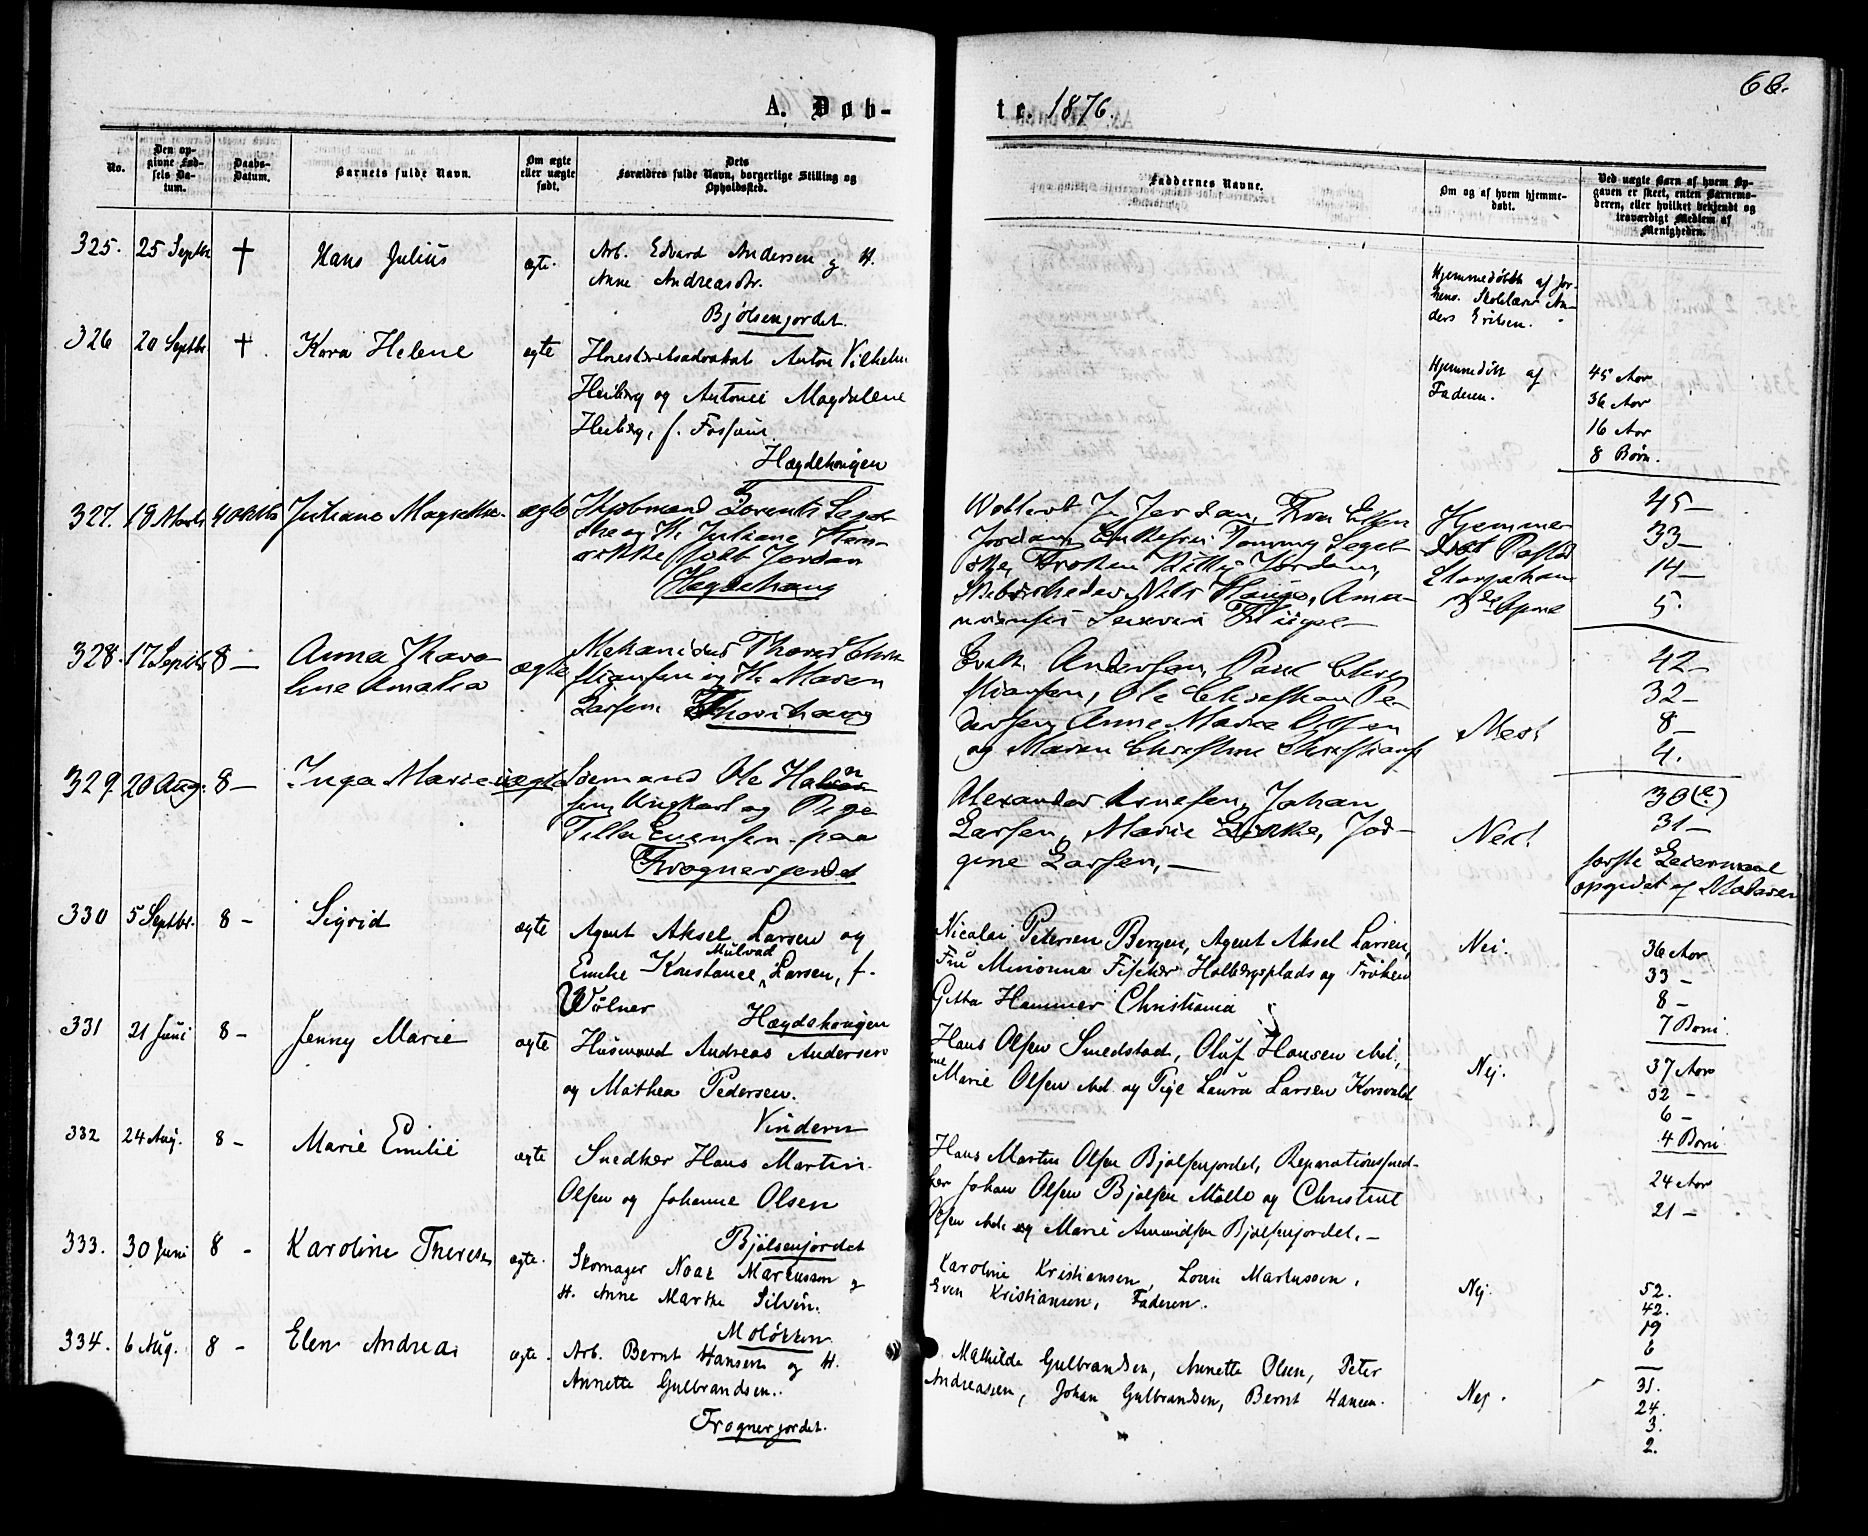 68.
A. Døb-
te. 1876.
No.
Den op-
givne Fød-
sels Da-
tum.
Daabs-
Datum.
Barnets fulde Navn.
Om ægte
eller uægte
født.
Dets
Forældres fulde Navn, borgerlige Stilling og
Opholdssted.
Faddernes Navne.
Om og af hvem hjemme-
døbt.
Ved uægte Barn af hvem Op-
gaven er skeet, enten Barnemo-
deren, eller hvilket bekjendt og
troværdigt Medlem af
Menigheden.
325. 25 Septbr † Hans Julius ægte.
Arb. Edvard Andersen og H.
Anne Andreasdtr.
Bjølsenjordet.
Hjemmedøbt af Jor-
Skolelærer An-
ders Eriksen.
326 20 Septbr † Kara Helene ægte
Høiesteretsadvokat Anton Vilhelm
Heiberg og Antonie Magdalene
Heiberg, f.
Hægdehougen
Hjemmedøbt af
Faderen.
45 Aar
36 Aar
16 Aar
8 Børn.
327. 18 Marts 4 Juliane Magrethe ægte
Kjøbmand Lorents Segel-
og H. Juliane
født Jordan
Hægdehoug
Jordan,
Jordan, Enkefru Segel-
Frøken Jordan,
Nils Houge,
Hjemme-
døbt
45 —
33 —
14 —
5.
328. 17 Septbr 8 — Anna Karo-
line Amalia ægte
Mekanikus Thorvd Chri-
stiansen og H. Maren
Larsen
Andersen, Paul Chri-
stiansen, Ole Christian Pe-
dersen, Anne Marie Olsen
og Maren Christine Christians
Nei!
42 —
32 —
8 —
4.
329. 20 Aug. 8 — Inga Marie uægte
Sømand Ole
sen, Ungkarl og Pige
Evensen paa
Frognerjordet
Alexander Arnesen, Johan
Larsen, Marie Jør-
gine Larsen, —
Nei!
30 (e)
31 —
første Leiermaal
opgivet af Moderen
330 5 Septbr. 8 - Sigrid ægte
Agent Aksel Larsen og
Emilie Konstance Mulvad Larsen, f.
Wølner Hægdehougen
Nicolai Petersen Bergen, Agent Aksel Larsen,
Frü Fischer Holbergsplads og Frøken
Hammer Christiania
Nei.
36 Aar
33 -
8 -
7 Børn
331 21 Juni 8 - Jenny Marie ægte
Husmand Andreas Andersen
og Mathea Pedersen.
Vindern
Hans Olsen Smedstad, Oluf Hansen ibd,
Marie Olsen ibd og Pige Laura Larsen Korsvold
Nej.
37 Aar
32 -
6 -
4 Børn
332 24 Aug. 8 - Marie Emilie ægte
Snedker Hans Martin
Olsen og Johanne Olsen
Bjølsenjordet
Hans Martin Olsen Bjølsenjordet, Reparationssned-
ker Johan Olsen Bjølsen Mølle og Christine
Olsen ibd. og Marie Amundsen Bjølsenjordet. —
24 Aar
21 —
333. 30 Juni 8 - Karoline Therese ægte.
Skomager Noak Markussen og
H. Anne Marthe Silvén.
Moløkken
Karoline Kristiansen, Lovise Markussen,
Even Kristiansen, Faderen.
Nej.
52.
42.
19
6
334. 6 Aug. 8 - Elen Andrea ægte.
Arb. Bernt Hansen og H.
Annette Gulbrandsen.
Frognerjordet.
Mathilde Gulbrandsen, Annette Olsen, Peter
Andreassen, Johan Gulbrandsen, Bernt Hansen.
Nej.
31.
24.
3.
2.